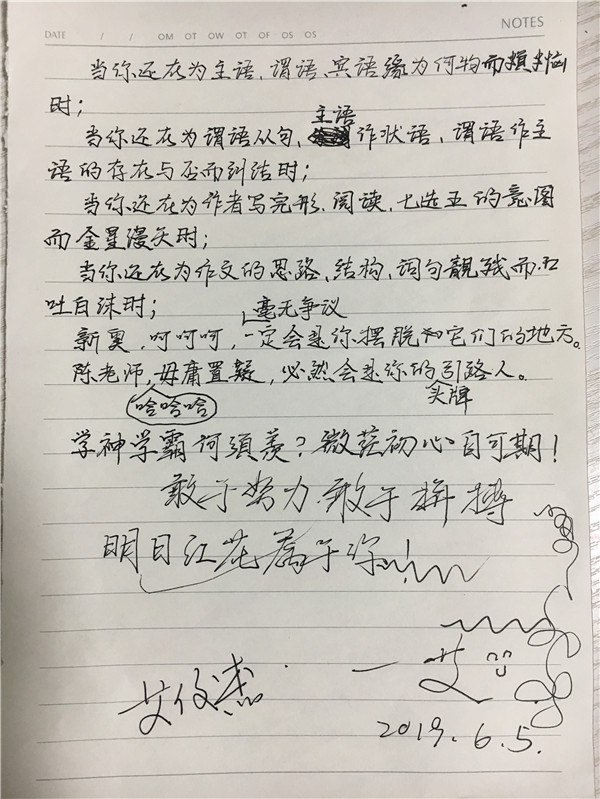 NOTES
DATE / / OM OT OW OT OF OS OS
当你还在为主语、谓语、宾语缘为何物而烦恼
时；
主语
当你还在为谓语从句、作状语，谓语作主
语的存在与否而纠结时；
当你还在为作者写完形、阅读、七选五的意图
而金星漫天时；
当你还在为作文的思路、结构、词句靓残而口
吐白沫时；
毫无争议
新奥，呵呵呵，一定会是你摆脱和它们的地方。
陈老师，毋庸置疑，必然会是你的引路人。
哈哈哈
头牌
学神学霸何须羡？微茫初心自可期！
敢于努力敢于拼搏
明日红花属于你！
艾俊杰
一艾
2019.6.5.